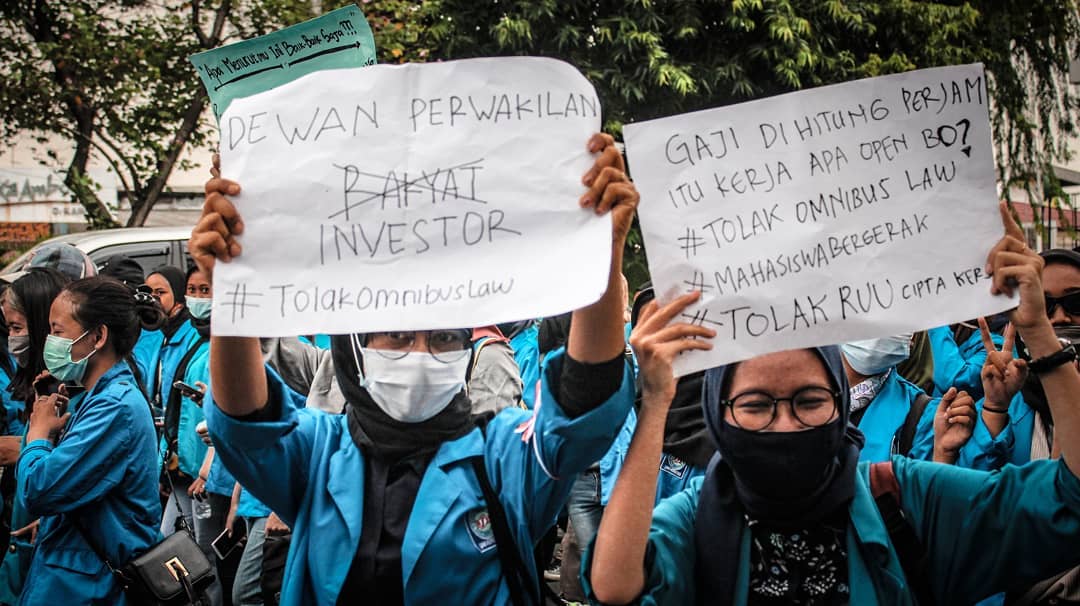 "Apa Menurutmu Ini Baik-Baik Saja???"
DEWAN PERWAKILAN
RAKYAT
INVESTOR
#TolakOmnibusLaw
GAJI DI HITUNG PERJAM
ITU KERJA APA OPEN BO?
#TOLAK OMNIBUS LAW
#MAHASISWABERGERAK
#TOLAK RUU CIPTA KER